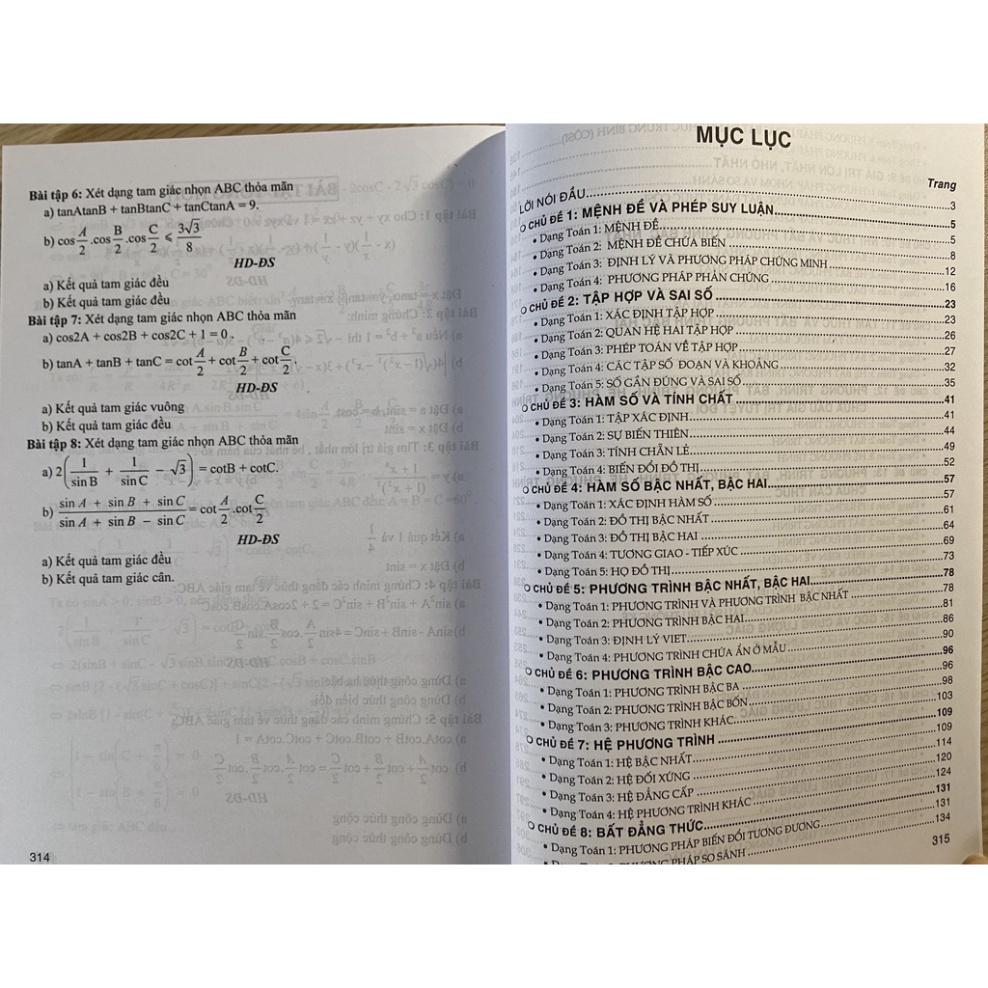 Bài tập 6: Xét dạng tam giác nhọn ABC thỏa mãn
a) tanAtanB + tanBtanC + tanCtanA = 9.
b) cos A/2 .cos B/2 .cos C/2 ⩽ 3√3/8
HD-ĐS
a) Kết quả tam giác đều
b) Kết quả tam giác đều
Bài tập 7: Xét dạng tam giác nhọn ABC thỏa mãn
a) cos2A + cos2B + cos2C + 1 = 0 .
b) tanA + tanB + tanC = cot A/2 + cot B/2 + cot C/2 .
HD-ĐS
a) Kết quả tam giác vuông
b) Kết quả tam giác đều
Bài tập 8: Xét dạng tam giác nhọn ABC thỏa mãn
a) 2(1/sin B + 1/sin C − √3) = cotB + cotC.
b) (sin A + sin B + sin C)/(sin A + sin B − sin C) = cot A/2 .cot C/2
HD-ĐS
a) Kết quả tam giác đều
b) Kết quả tam giác cân.
314
MỤC LỤC
Trang
LỜI NÓI ĐẦU 3
CHỦ ĐỀ 1: MỆNH ĐỀ VÀ PHÉP SUY LUẬN 5
• Dạng Toán 1: MỆNH ĐỀ 5
• Dạng Toán 2: MỆNH ĐỀ CHỨA BIẾN 8
• Dạng Toán 3: ĐỊNH LÝ VÀ PHƯƠNG PHÁP CHỨNG MINH 12
• Dạng Toán 4: PHƯƠNG PHÁP PHẢN CHỨNG 16
CHỦ ĐỀ 2: TẬP HỢP VÀ SAI SỐ 23
• Dạng Toán 1: XÁC ĐỊNH TẬP HỢP 23
• Dạng Toán 2: QUAN HỆ HAI TẬP HỢP 26
• Dạng Toán 3: PHÉP TOÁN VỀ TẬP HỢP 27
• Dạng Toán 4: CÁC TẬP SỐ ĐOẠN VÀ KHOẢNG 32
• Dạng Toán 5: SỐ GẦN ĐÚNG VÀ SAI SỐ 35
CHỦ ĐỀ 3: HÀM SỐ VÀ TÍNH CHẤT 41
• Dạng Toán 1: TẬP XÁC ĐỊNH 41
• Dạng Toán 2: SỰ BIẾN THIÊN 44
• Dạng Toán 3: TÍNH CHẴN LẺ 49
• Dạng Toán 4: BIẾN ĐỔI ĐỒ THỊ 52
CHỦ ĐỀ 4: HÀM SỐ BẬC NHẤT, BẬC HAI 57
• Dạng Toán 1: XÁC ĐỊNH HÀM SỐ 57
• Dạng Toán 2: ĐỒ THỊ BẬC NHẤT 61
• Dạng Toán 3: ĐỒ THỊ BẬC HAI 64
• Dạng Toán 4: TƯƠNG GIAO - TIẾP XÚC 69
• Dạng Toán 5: HỌ ĐỒ THỊ 73
CHỦ ĐỀ 5: PHƯƠNG TRÌNH BẬC NHẤT, BẬC HAI 78
• Dạng Toán 1: PHƯƠNG TRÌNH VÀ PHƯƠNG TRÌNH BẬC NHẤT 78
• Dạng Toán 2: PHƯƠNG TRÌNH BẬC HAI 81
• Dạng Toán 3: ĐỊNH LÝ VIET 86
• Dạng Toán 4: PHƯƠNG TRÌNH CHỨA ẨN Ở MẪU 90
CHỦ ĐỀ 6: PHƯƠNG TRÌNH BẬC CAO 96
• Dạng Toán 1: PHƯƠNG TRÌNH BẬC BA 96
• Dạng Toán 2: PHƯƠNG TRÌNH BẬC BỐN 98
• Dạng Toán 3: PHƯƠNG TRÌNH KHÁC 103
CHỦ ĐỀ 7: HỆ PHƯƠNG TRÌNH 109
• Dạng Toán 1: HỆ BẬC NHẤT 109
• Dạng Toán 2: HỆ ĐỐI XỨNG 114
• Dạng Toán 3: HỆ ĐẲNG CẤP 120
• Dạng Toán 4: HỆ PHƯƠNG TRÌNH KHÁC 124
CHỦ ĐỀ 8: BẤT ĐẲNG THỨC 131
• Dạng Toán 1: PHƯƠNG PHÁP BIẾN ĐỔI TƯƠNG ĐƯƠNG 131
PHƯƠNG PHÁP SO SÁNH 134
315